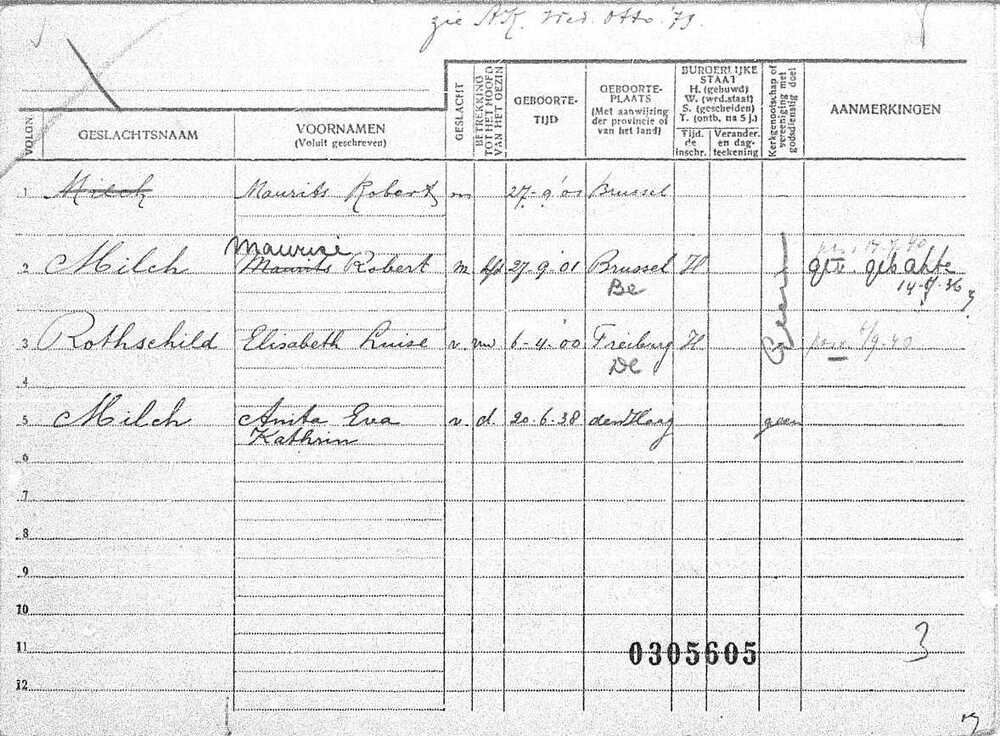 zie AK. Ned. Otto '79.
VOLGN.
GESLACHTSNAAM
VOORNAMEN
(Voluit geschreven)
GESLACHT
BETREKKING
TOT HET HOOFD
VAN HET GEZIN
GEBOORTE-
TIJD
GEBOORTE-
PLAATS
(Met aanwijzing
der provincie of
van het land)
BURGERLIJKE
STAAT
H. (gehuwd)
W. (wed.staat)
S. (gescheiden)
T. (ontb. na 5 j.)
Tijd.
de
inschr.
Verander.
en dag-
teekening
Kerkgenootschap of
vereeniging met
godsdienstig doel
AANMERKINGEN
1 Milch Maurits Robert m 27-9-'01 Brussel
Maurice
2 Milch Maurits Robert m hfd 27-9-'01 Brussel H Geen get. geb. akte
Be 14-8-'36
3 Rothschild Elisabeth Luise v. vw 6-4-'00 Freiburg H /9-40
De
4
5 Milch Anita Eva v. d. 20-6-38 den Haag geen
Kathrin
6
7
8
9
10
11 0305605 3
12